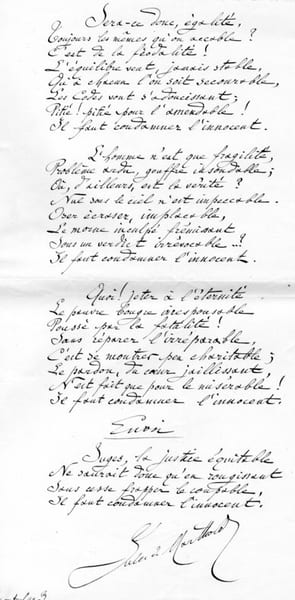 Sera-ce donc, égalité,
Toujours les mêmes qu'on accable ?
C'est de la féodalité !
L'équilibre veut, jamais stable,
Qu'à chacun l'on soit secourable,
Les Codes vont s'adoucissant ;
Pitié ! pitié pour l'amendable !
Il faut condamner l'innocent.
L'homme n'est que fragilité,
Problème ardu, gouffre insondable ;
Où, d'ailleurs, est la vérité ?
Nul sous le ciel n'est impeccable.
Oser écraser, implacable,
Le morne inculpé frémissant
Sous un verdict irrévocable ..?
Il faut condamner l'innocent.
Quoi ! jeter à l'éternité
Le pauvre bougre irresponsable
Poussé par la fatalité !
Sans réparer l'irréparable,
C'est se montrer peu charitable ;
Le pardon, du cœur jaillissant,
N'est fait que pour le misérable !
Il faut condamner l'innocent.
Envoi
Juges, la justice équitable
Ne saurait donc qu'en rougissant
Sans cesse frapper le coupable,
Il faut condamner l'innocent.